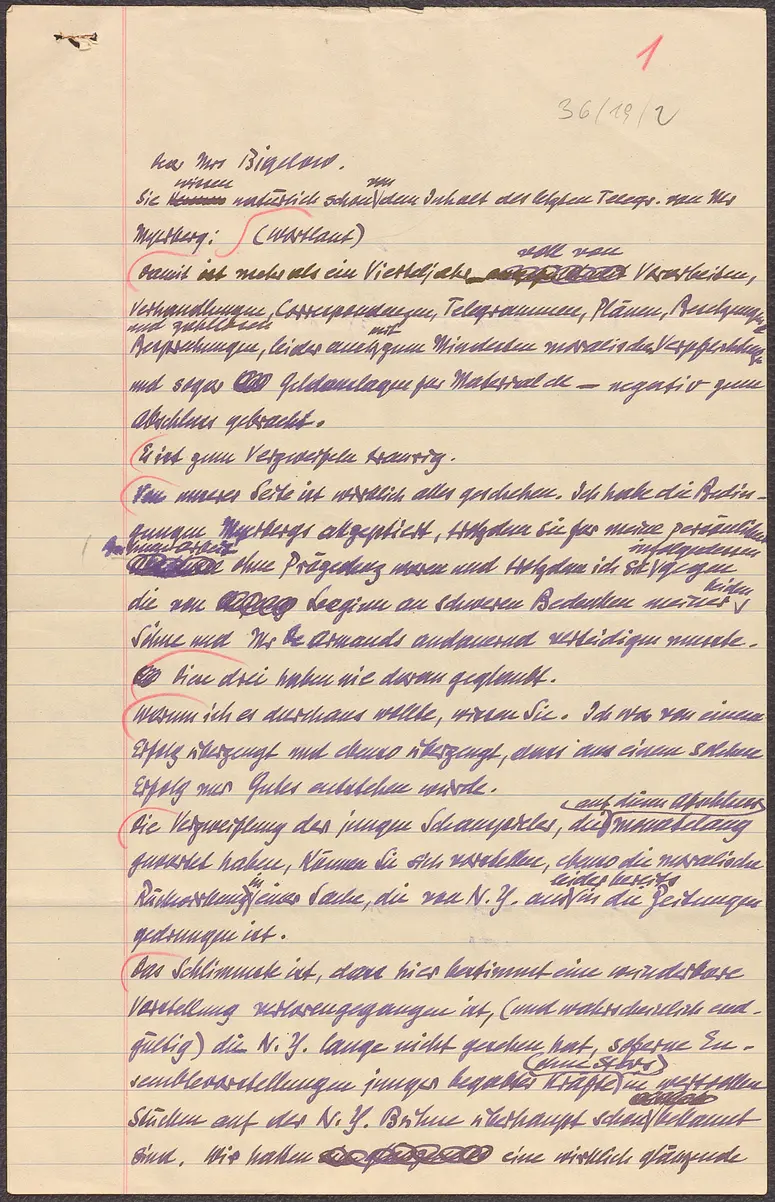 1
36/19/2
Dear Mrs Bigelow.
Sie wissen natürlich schon von dem Inhalt des letzten Telegr. von Mr
Myerberg: (Wortlaut)
Damit ist mehr als ein Vierteljahr voll von Vorarbeiten,
Verhandlungen, Correspondenzen, Telegrammen, Plänen, Besetzungen
und zahllosen
Besprechungen, leider auch mit zum Mindesten moralischen Verpflichtungen
und sogar Geldauslagen für Material etc — negativ zum
Abschluss gebracht.
Es ist zum Verzweifeln traurig.
Von unserer Seite ist wirklich alles geschehen. Ich habe die Bedin-
gungen Myerbergs akzeptiert, trotzdem sie für meine persönliche
ohne Präzedenz waren und trotzdem ich sie infolgedessen gegen
die von Beginn an schweren Bedenken meiner beiden
Söhne und Mr Armands andauernd verteidigen musste.
Diese drei haben nie daran geglaubt.
Warum ich es durchaus wollte, wissen Sie. Ich war von einem
Erfolg überzeugt und ebenso überzeugt, dass aus einem solchen
Erfolg nur Gutes entstehen würde.
Die Verzweiflung der jungen Schauspieler, die auf diesen Abschluss monatelang
gewartet haben, können Sie sich vorstellen, ebenso die moralische
Rückwirkung in einer Sache, die von N.Y. aus leider bereits in die Zeitungen
gedrungen ist.
Das Schlimmste ist, dass hier bestimmt eine wunderbare
Vorstellung verlorengegangen ist, (und wahrscheinlich end-
gültig) die N.Y. lange nicht gesehen hat, soferne En-
semblevorstellungen junger begabter Kräfte (ohne Stars) in wertvollen
Stücken auf der N.Y. Bühne überhaupt schon bekannt
sind. Wir hatten eine wirklich glänzende